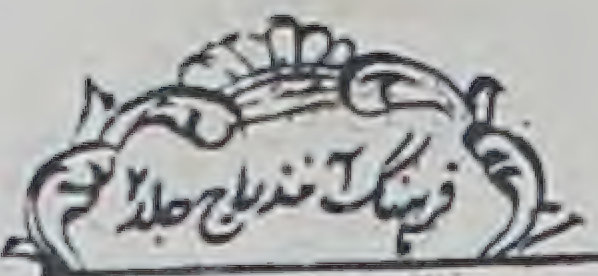 فرہنگ آنندراج جلد ۲